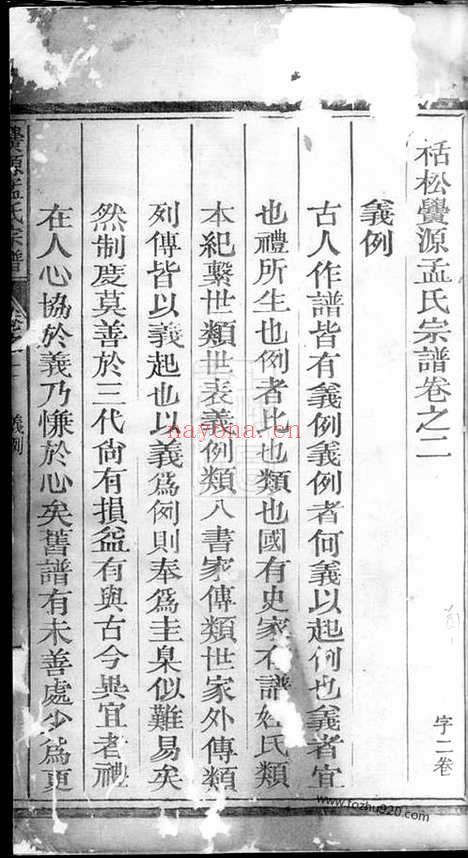 栝松鲎源孟氏宗譜卷之二
字二卷
義例
古人作譜皆有義例義例者何義以起例也義者宜
也禮所生也例者比也類也國有史家有譜姓氏類
本紀繫世類世表義例類八書家傳類世家外傳類
列傳皆以義起也以義爲例則奉爲圭臬似難易矣
然制度莫善於三代尙有損益有與古今異宜者禮
在人心協於義乃慊於心矣舊譜有未善處少爲更
源孟氏宗譜
卷之二
義例
nayona.cn
www.tozhu920.com